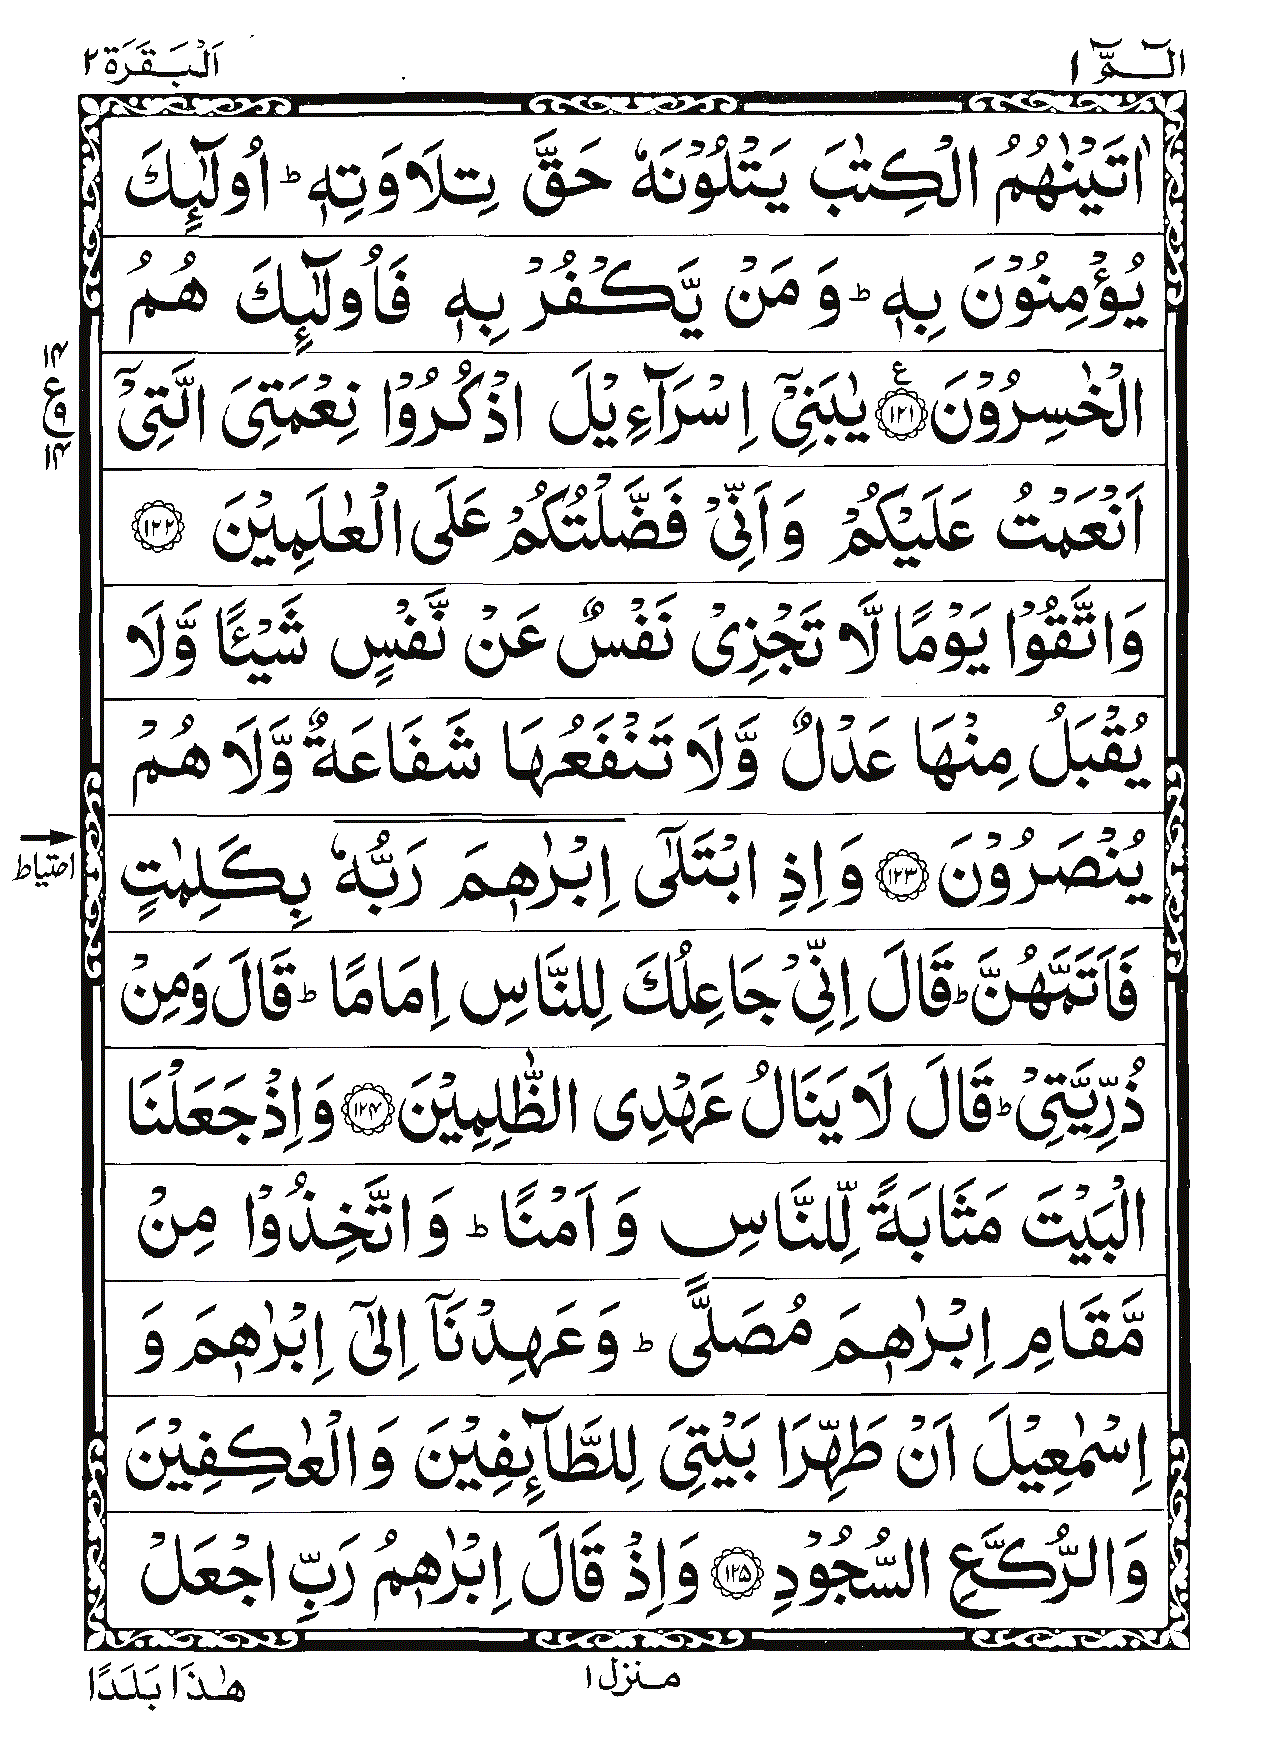 الٓـمّٓ ١
اَلْبَقَرَة ٢
اٰتَيْنٰهُمُ الْكِتٰبَ يَتْلُوْنَهٗ حَقَّ تِلَاوَتِهٖ ؕ اُولٰٓئِكَ
يُؤْمِنُوْنَ بِهٖ ؕ وَ مَنْ يَّكْفُرْ بِهٖ فَاُولٰٓئِكَ هُمُ
الْخٰسِرُوْنَ ۝۱۲۱ ع يٰبَنِيْۤ اِسْرَآءِيْلَ اذْكُرُوْا نِعْمَتِيَ الَّتِيْۤ
۱۴
ع
۹
۱۴
اَنْعَمْتُ عَلَيْكُمْ وَ اَنِّيْ فَضَّلْتُكُمْ عَلَى الْعٰلَمِيْنَ ۝۱۲۲
وَ اتَّقُوْا يَوْمًا لَّا تَجْزِيْ نَفْسٌ عَنْ نَّفْسٍ شَيْـًٔا وَّ لَا
يُقْبَلُ مِنْهَا عَدْلٌ وَّ لَا تَنْفَعُهَا شَفَاعَةٌ وَّ لَا هُمْ
يُنْصَرُوْنَ ۝۱۲۳ وَ اِذِ ابْتَلٰۤى اِبْرٰهٖمَ رَبُّهٗ بِكَلِمٰتٍ
احتياط
فَاَتَمَّهُنَّ ؕ قَالَ اِنِّيْ جَاعِلُكَ لِلنَّاسِ اِمَامًا ؕ قَالَ وَ مِنْ
ذُرِّيَّتِيْ ؕ قَالَ لَا يَنَالُ عَهْدِي الظّٰلِمِيْنَ ۝۱۲۴ وَ اِذْ جَعَلْنَا
الْبَيْتَ مَثَابَةً لِّلنَّاسِ وَ اَمْنًا ؕ وَ اتَّخِذُوْا مِنْ
مَّقَامِ اِبْرٰهٖمَ مُصَلًّى ؕ وَ عَهِدْنَاۤ اِلٰۤى اِبْرٰهٖمَ وَ
اِسْمٰعِيْلَ اَنْ طَهِّرَا بَيْتِيَ لِلطَّآئِفِيْنَ وَ الْعٰكِفِيْنَ
وَ الرُّكَّعِ السُّجُوْدِ ۝۱۲۵ وَ اِذْ قَالَ اِبْرٰهٖمُ رَبِّ اجْعَلْ
منزل ١
هٰذَا بَلَدًا